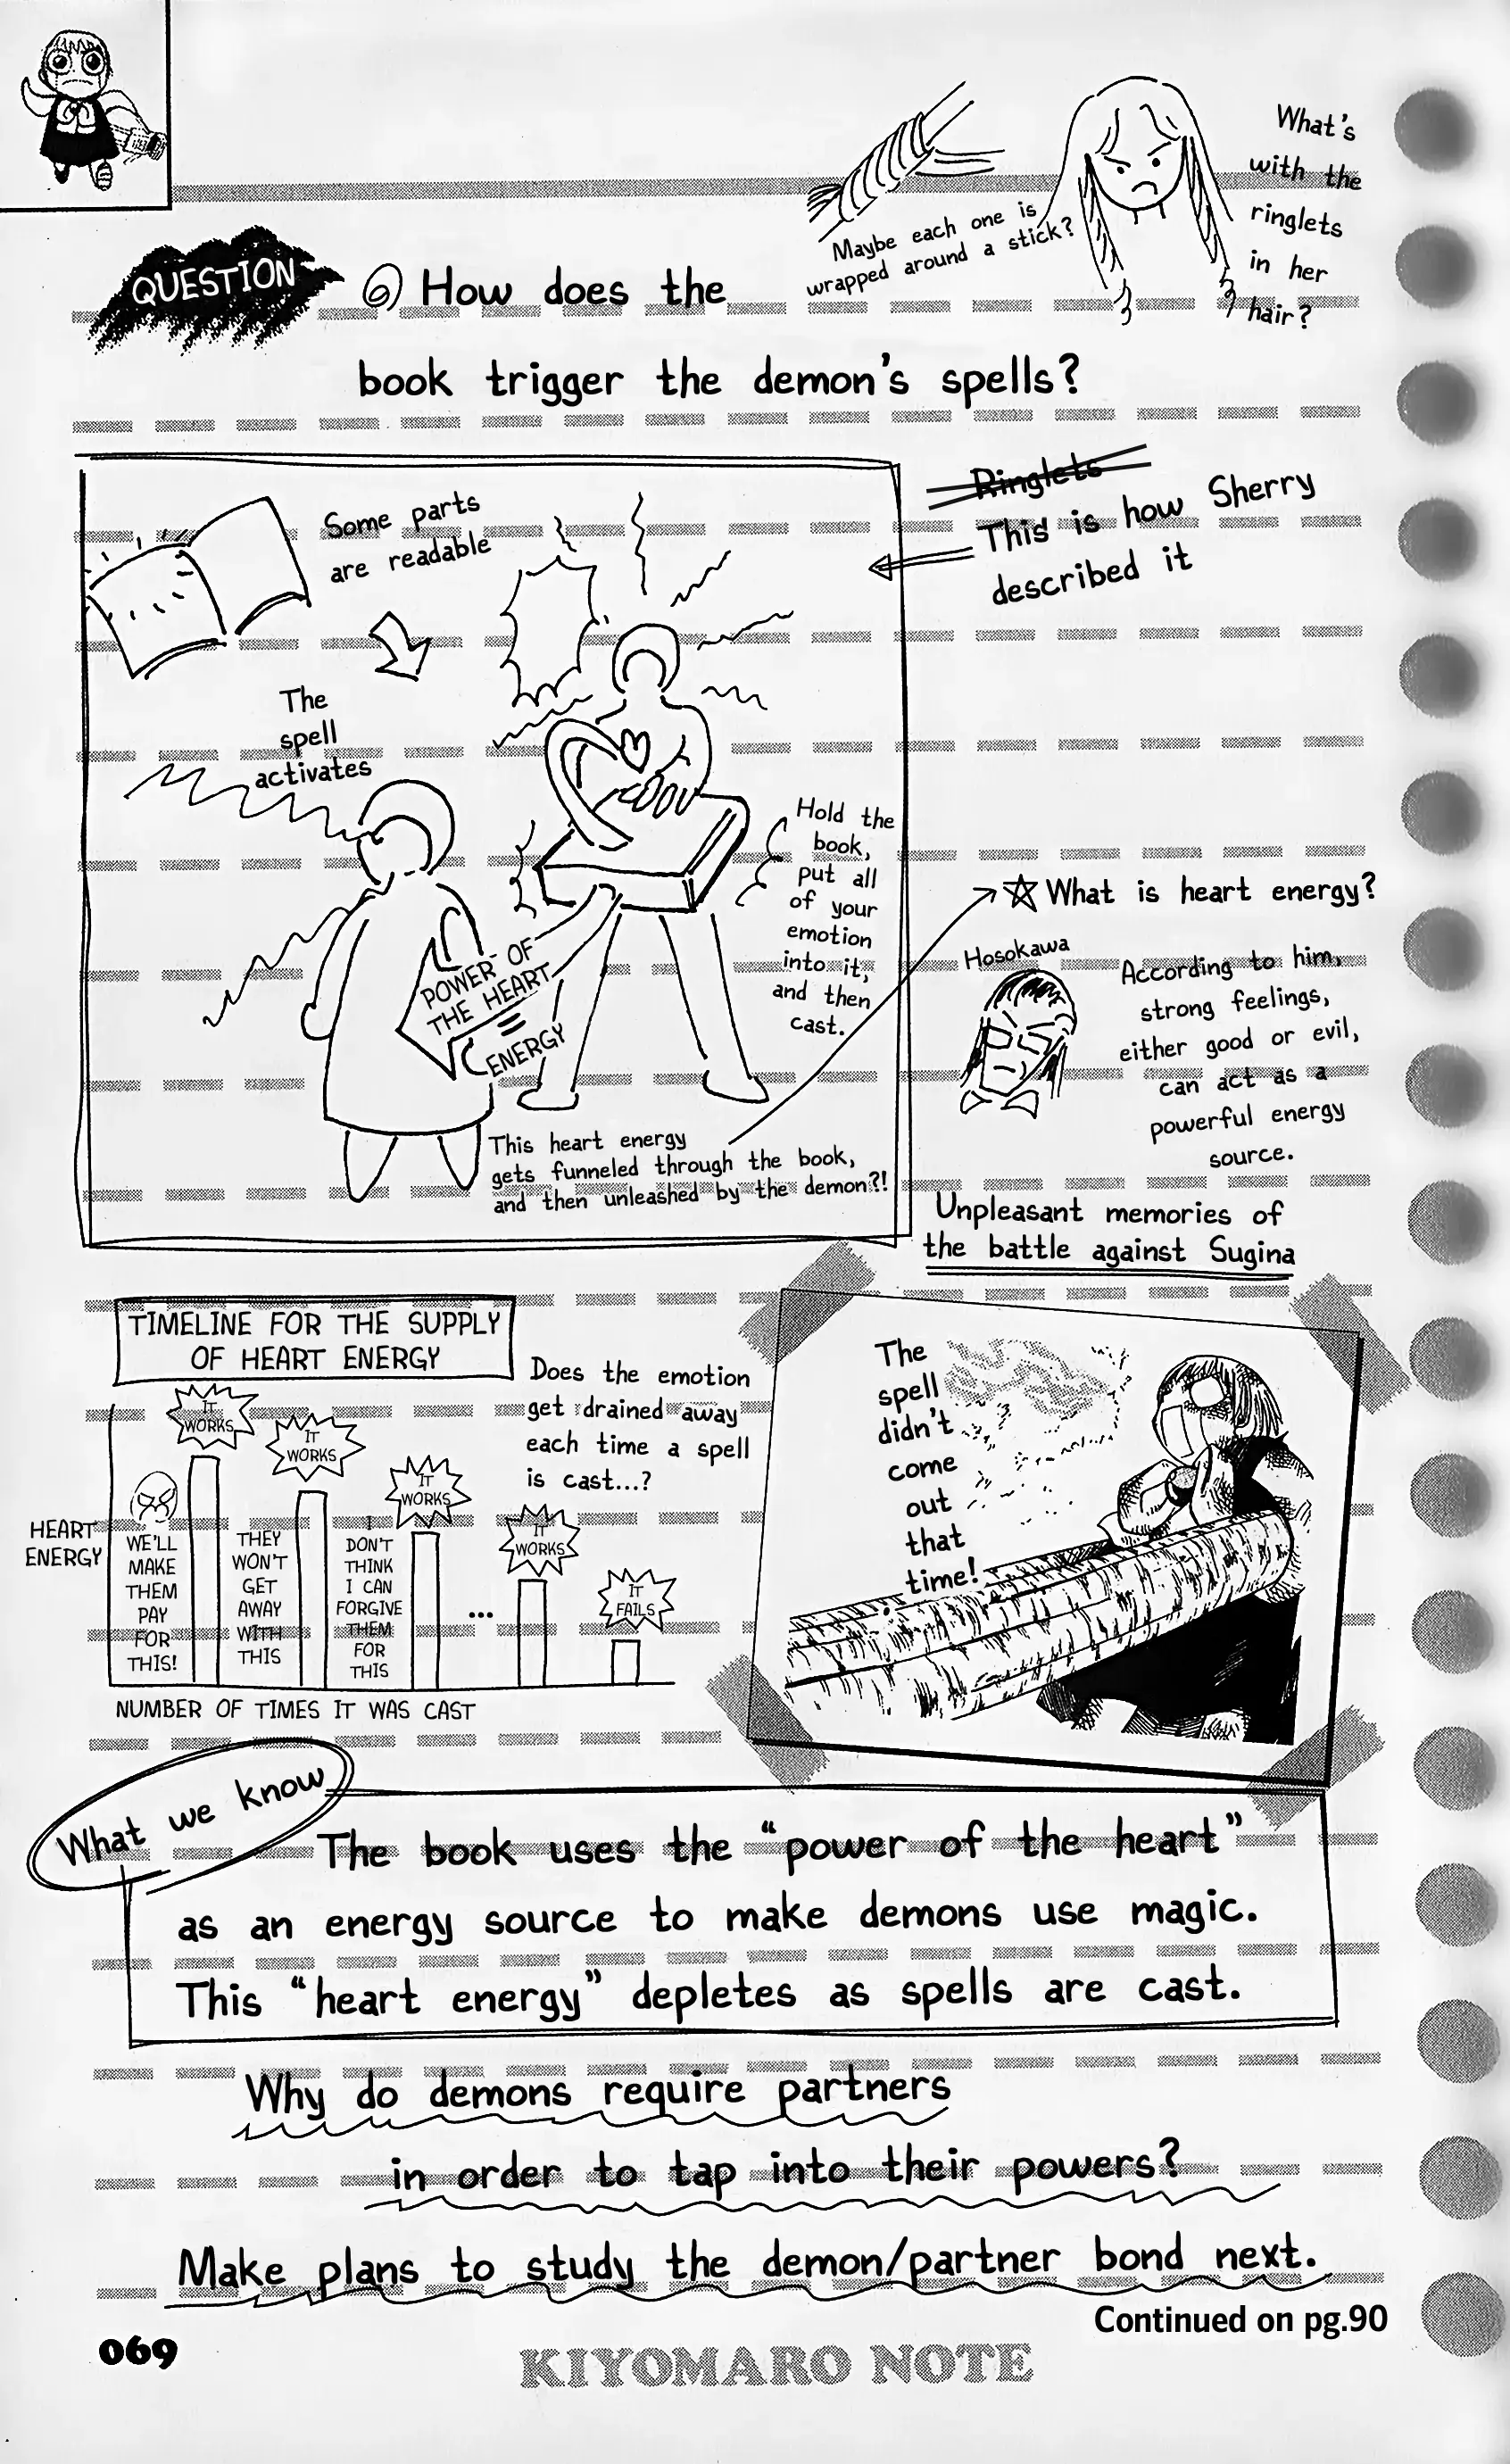 What's
with the
ringlets
in her
hair?
Maybe each one is
wrapped around a stick?
QUESTION
⑥ How does the
book trigger the demon's spells?
Ringlets
This is how Sherry
described it
Some parts
are readable
The
spell
activates
Hold the
book,
put all
of your
emotion
into it,
and then
cast.
POWER OF
THE HEART
=
ENERGY
This heart energy
gets funneled through the book,
and then unleashed by the demon?!
☆ What is heart energy?
Hosokawa
According to him,
strong feelings,
either good or evil,
can act as a
powerful energy
source.
Unpleasant memories of
the battle against Sugina
The
spell
didn't
come
out
that
time!
TIMELINE FOR THE SUPPLY
OF HEART ENERGY
Does the emotion
get drained away
each time a spell
is cast...?
HEART
ENERGY
IT
WORKS
IT
WORKS
IT
WORKS
IT
WORKS
IT
FAILS
WE'LL
MAKE
THEM
PAY
FOR
THIS!
THEY
WON'T
GET
AWAY
WITH
THIS
I
DON'T
THINK
I CAN
FORGIVE
THEM
FOR
THIS
...
NUMBER OF TIMES IT WAS CAST
What we know
The book uses the "power of the heart"
as an energy source to make demons use magic.
This "heart energy" depletes as spells are cast.
Why do demons require partners
in order to tap into their powers?
Make plans to study the demon/partner bond next.
Continued on pg.90
069
KIYOMARO NOTE